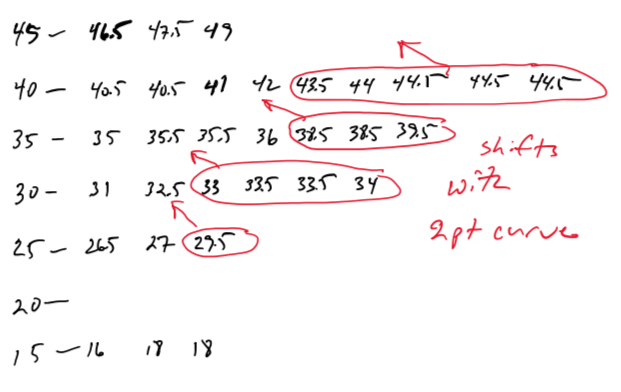 45 — 46.5 47.5 49
40 — 40.5 40.5 41 42 43.5 44 44.5 44.5 44.5
35 - 35 35.5 35.5 36 38.5 38.5 39.5
shifts
30 - 31 32.5 33 33.5 33.5 34
with
2pt curve
25 - 26.5 27 29.5
20 —
15 — 16 18 18